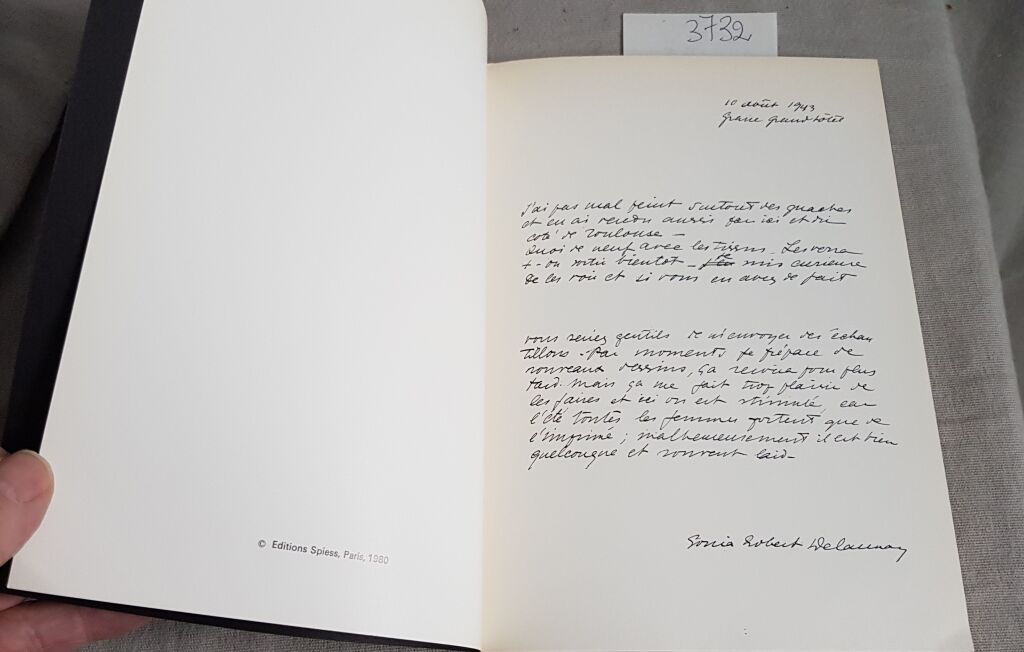 3732
© Editions Spiess, Paris, 1980
10 août 1943
Grasse Grand Hôtel
J'ai pas mal peint surtout des gouaches
et en ai vendu aussi par ici et du
coté de Toulouse –
Quoi de neuf avec les tissus. Les verra
t-on sortir bientot – suis curieuse
de les voir et si vous en avez de fait
vous seriez gentils de m'envoyer des échan
tillons – Par moments je prépare de
nouveaux dessins, ça servira pour plus
tard. Mais ça me fait trop plaisir de
les faires et ici on est stimulé car
l'été toutes les femmes portent que de
l'imprimé ; malheureusement il est bien
quelconque et souvent laid –
Sonia Robert Delaunay